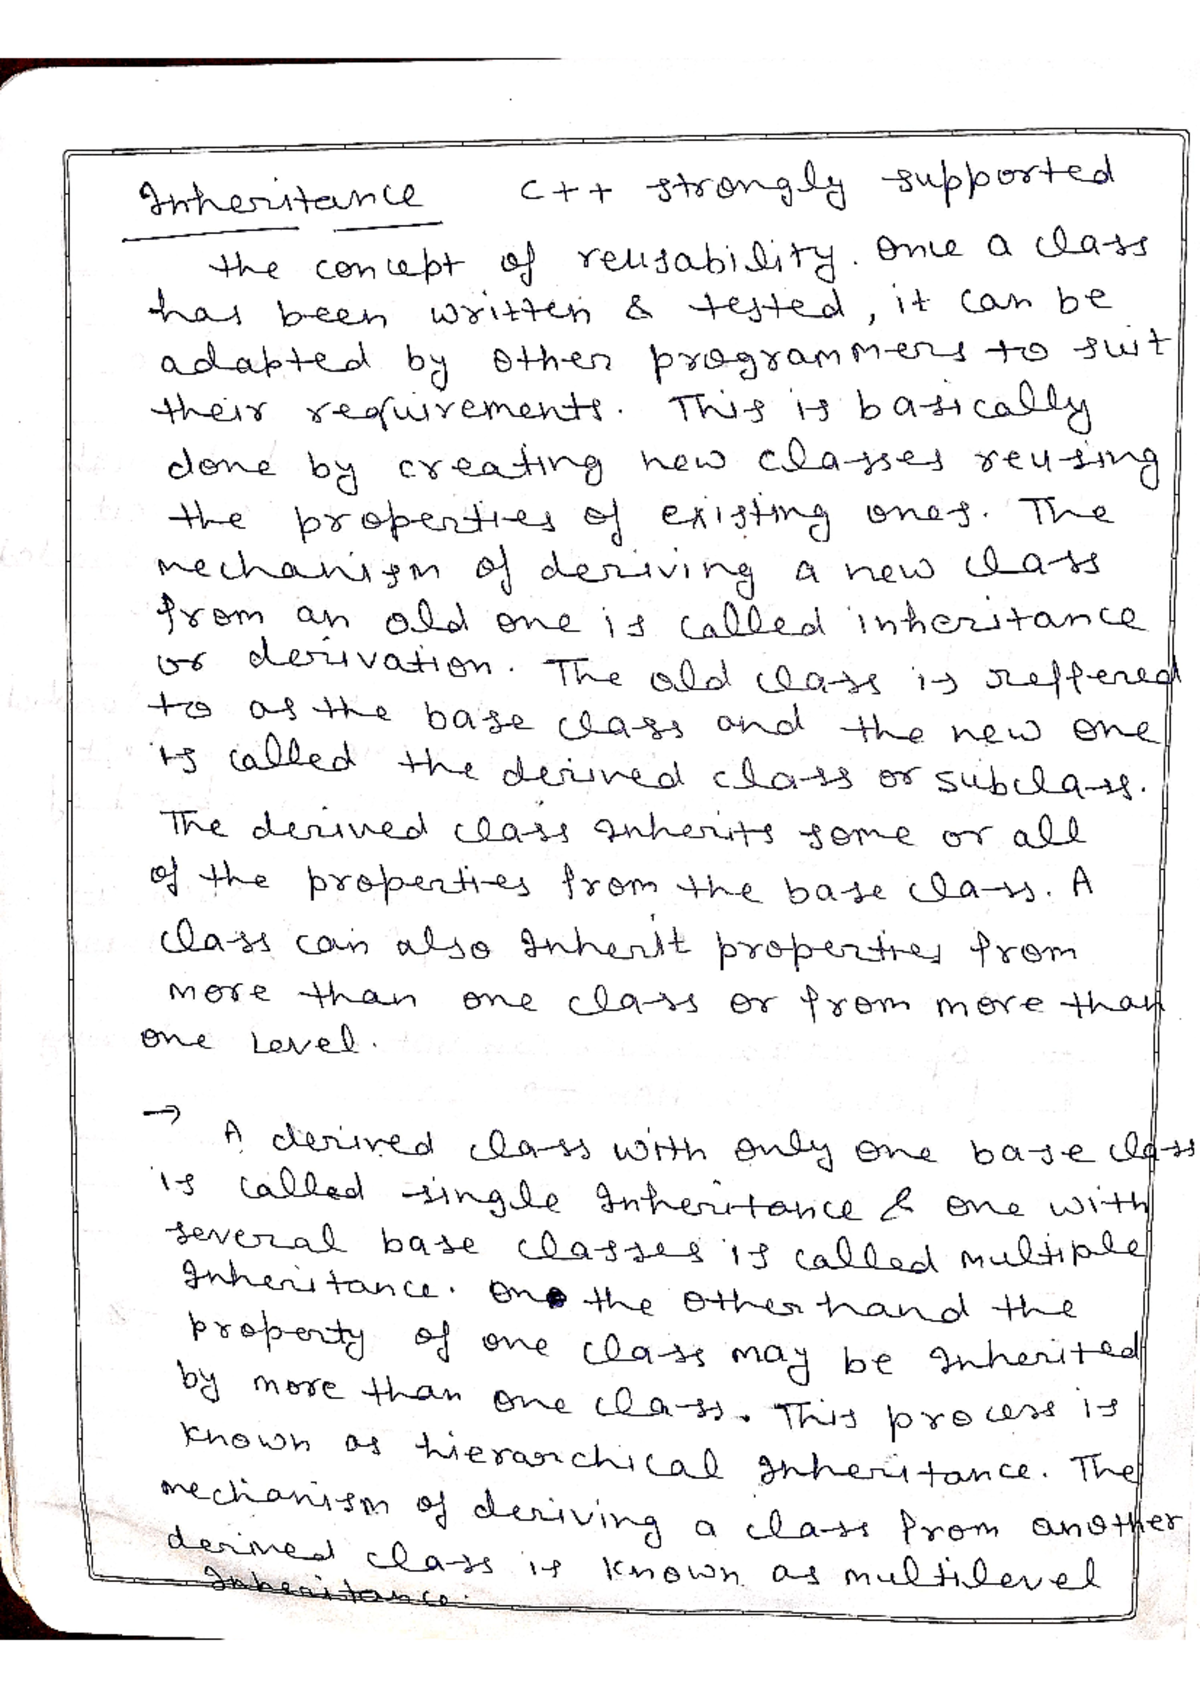 Inheritance C++ strongly supported
the concept of reusability. Once a class
has been written & tested, it can be
adapted by other programmers to suit
their requirements. This is basically
done by creating new classes reusing
the properties of existing ones. The
mechanism of deriving a new class
from an old one is called inheritance
or derivation. The old class is reffered
to as the base class and the new one
is called the derived class or subclass.
The derived class Inherits some or all
of the properties from the base class. A
class can also Inherit properties from
more than one class or from more than
one Level.
→ A derived class with only one base class
is called single Inheritance & one with
several base classes is called multiple
Inheritance. On the other hand the
property of one class may be Inherited
by more than one class. This process is
known as hierarchical Inheritance. The
mechanism of deriving a class from another
derived class is known as multilevel
Inheritance.